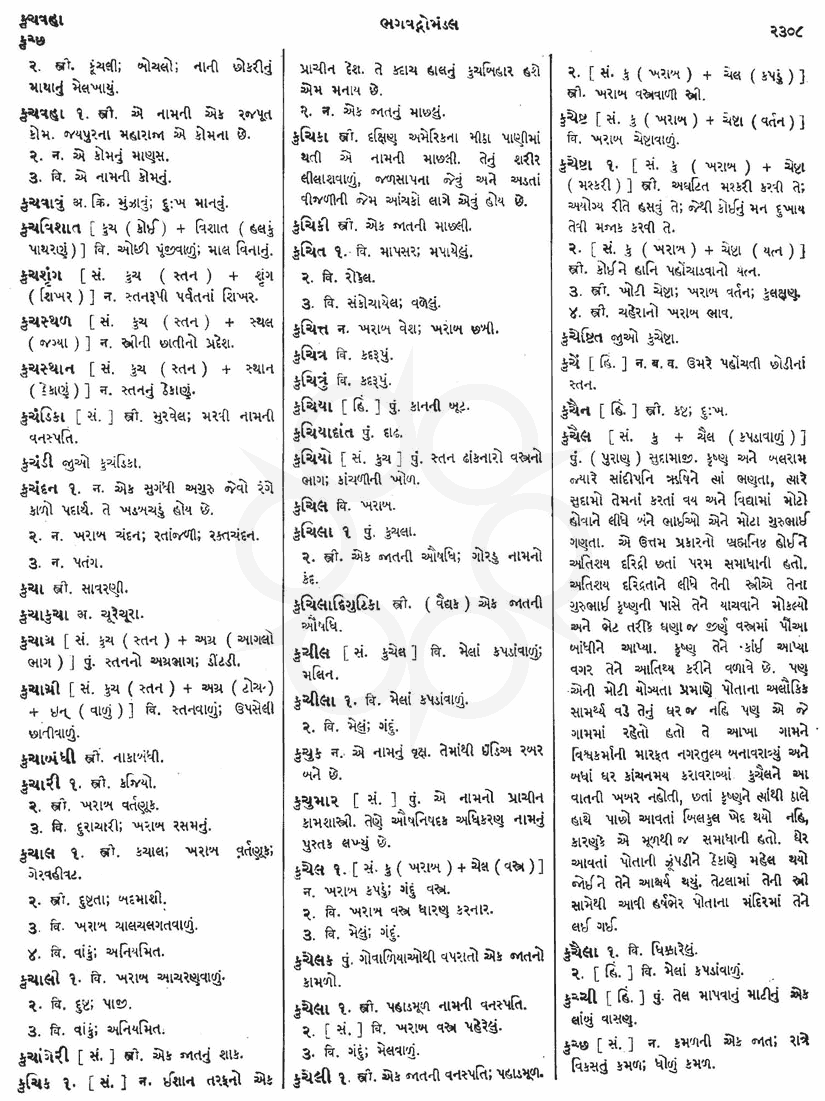 કુચવહા
કુચ્છ
ભગવદ્ગોમંડલ
૨૩૦૮
૨. સ્ત્રી. કૂંચલી; બોચલો; નાની છોકરીનું
માથાનું મેલખાયું.
કુચવહા ૧. સ્ત્રી. એ નામની એક રજપૂત
કોમ. જયપુરના મહારાજા એ કોમના છે.
૨. ન. એ કોમનું માણસ.
૩. વિ. એ નામની કોમનું.
કુચવાવું અ. ક્રિ. મુંઝાવું; દુઃખ માનવું.
કુચવિશાત [ કુચ ( કોઈ ) + વિશાત ( હલકું
પાથરણું ) ] વિ. ઓછી પૂંજીવાળું; માલ વિનાનું.
કુચશૃંગ [ સં. કુચ ( સ્તન ) + શૃંગ
( શિખર ) ] ન. સ્તનરૂપી પર્વતનાં શિખર.
કુચસ્થળ [ સં. કુચ ( સ્તન ) + સ્થલ
( જગ્યા ) ] ન. સ્ત્રીની છાતીનો પ્રદેશ.
કુચસ્થાન [ સં. કુચ ( સ્તન ) + સ્થાન
( ઠેકાણું ) ] ન. સ્તનનું ઠેકાણું.
કુચંડિકા [ સં. ] સ્ત્રી. મુરવેલ; મરવી નામની
વનસ્પતિ.
કુચંડી જીઓ કુચંડિકા.
કુચંદન ૧. ન. એક સુગંધી અગુરુ જેવો રંગે
કાળો પદાર્થ. તે ખડબચડું હોય છે.
૨. ન. ખરાબ ચંદન; રતાંજળી; રક્તચંદન.
૩. ન. પતંગ.
કુચા સ્ત્રી. સાવરણી.
કુચાકુચા અ. ચૂરેચૂરા.
કુચાગ્ર [ સં. કુચ ( સ્તન ) + અગ્ર ( આગલો
ભાગ ) ] પું. સ્તનનો અગ્રભાગ; ડીંટડી.
કુચાગ્રી [ સં. કુચ ( સ્તન ) + અગ્ર ( ટોચ )
+ ઇન્ ( વાળું ) ] વિ. સ્તનવાળું; ઉપસેલી
છાતીવાળું.
કુચાબંધી સ્ત્રી. નાકાબંધી.
કુચારી ૧. સ્ત્રી. કજિયો.
૨. સ્ત્રી. ખરાબ વર્તણૂક.
૩. વિ. દુરાચારી; ખરાબ રસમનું.
કુચાલ ૧. સ્ત્રી. કચાલ; ખરાબ વર્તણૂક;
ગેરવહીવટ.
૨. સ્ત્રી. દુષ્ટતા; બદમાશી.
૩. વિ. ખરાબ ચાલચલગતવાળું.
૪. વિ. વાંકું; અનિયમિત.
કુચાલી ૧. વિ. ખરાબ આચરણવાળું.
૨. વિ. દુષ્ટ; પાજી.
૩. વિ. વાંકું; અનિયમિત.
કુચાંગેરી [ સં. ] સ્ત્રી. એક જાતનું શાક.
કુચિક ૧. [ સં. ] ન. ઈશાન તરફનો એક
પ્રાચીન દેશ. તે કદાચ હાલનું કુચબિહાર હશે
એમ મનાય છે.
૨. ન. એક જાતનું માછલું.
કુચિકા સ્ત્રી. દક્ષિણ અમેરિકના મીઠા પાણીમાં
થતી એ નામની માછલી. તેનું શરીર
લીલાશવાળું, જળસાપના જેવું અને અડતાં
વીજળીની જેમ આંચકો લાગે એવું હોય છે.
કુચિકી સ્ત્રી. એક જાતની માછલી.
કુચિત ૧. વિ. માપસર; મપાયેલું.
૨. વિ. રોકેલ.
૩. વિ. સંકોચાયેલ; વળેલું.
કુચિત્ત ન. ખરાબ વેશ; ખરાબ છબી.
કુચિત્ર વિ. કદરૂપું.
કુચિત્રું વિ. કદરૂપું.
કુચિયા [ હિં. ] પું. કાનની બૂટ.
કુચિયાદાંત પું. દાઢ.
કુચિયો [ સં. કુચ ] પું. સ્તન ઢાંકનારો વસ્ત્રનો
ભાગ; કાંચળીની ખોળ.
કુચિલ વિ. ખરાબ.
કુચિલા ૧ પું. કુચલા.
૨. સ્ત્રી. એક જાતની ઔષધિ; ગોરડુ નામનો
કંદ.
કુચિલાદિગુટિકા સ્ત્રી. ( વૈદ્યક ) એક જાતની
ઔષધિ.
કુચીલ [ સં. કુચેલ ] વિ. મેલાં કપડાંવાળું;
મલિન.
કુચીલા ૧. વિ. મેલાં કપડાંવાળું.
૨. વિ. મેલું; ગંદું.
કુચુક ન. એ નામનું વૃક્ષ. તેમાંથી ઇંડિઅ રબર
બને છે.
કુચુમાર [ સં. ] પું. એ નામનો પ્રાચીન
કામશાસ્ત્રી. તેણે ઔષનિષદક અધિકરણ નામનું
પુસ્તક લખ્યું છે.
કુચેલ ૧. [ સં. કુ ( ખરાબ ) + ચેલ ( વસ્ત્ર ) ]
ન. ખરાબ કપડું; ગંદું વસ્ત્ર.
૨. વિ. ખરાબ વસ્ત્ર ધારણ કરનાર.
૩. વિ. મેલું; ગંદું.
કુચેલક પું. ગોવાળિયાઓથી વપરાતો એક જાતનો
કામળો.
કુચેલા ૧. સ્ત્રી. પહાડમૂળ નામની વનસ્પતિ.
૨. [ સં. ] વિ. ખરાબ વસ્ત્ર પહેરેલું.
૩. વિ. ગંદું; મેલવાળું.
કુચેલી ૧. સ્ત્રી. એક જાતની વનસ્પતિ; પહાડમૂળ.
૨. [ સં. કુ ( ખરાબ ) + ચેલ ( કપડું ) ]
સ્ત્રી. ખરાબ વસ્ત્રવાળી સ્ત્રી.
કુચેષ્ટ [ સં. કુ ( ખરાબ ) + ચેષ્ટા ( વર્તન ) ]
વિ. ખરાબ ચેષ્ટાવાળું.
કુચેષ્ટા ૧. [ સં. કુ ( ખરાબ ) + ચેષ્ટા
( મશ્કરી ) ] સ્ત્રી. અઘટિત મશ્કરી કરવી તે;
અયોગ્ય રીતે હસવું તે; જેથી કોઈનું મન દુખાય
તેવી મજાક કરવી તે.
૨. [ સં. કુ ( ખરાબ ) + ચેષ્ટા ( યત્ન ) ]
સ્ત્રી. કોઈને હાનિ પહોંચાડવાનો યત્ન.
૩. સ્ત્રી. ખોટી ચેષ્ટા; ખરાબ વર્તન; કુલક્ષણ.
૪. સ્ત્રી. ચહેરાનો ખરાબ ભાવ.
કુચેષ્ટિત જીઓ કુચેષ્ટા.
કુચેં [ હિં. ] ન. બ. વ. ઉમરે પહોંચતી છોડીનાં
સ્તન.
કુચૈન [ હિં. ] સ્ત્રી. કષ્ટ; દુઃખ.
કુચૈલ [ સં. કુ + ચૈલ ( કપડાવાળું ) ]
પું. ( પુરાણ ) સુદામાજી. કૃષ્ણ અને બલરામ
જ્યારે સાંદીપનિ ઋષિને ત્યાં ભણતા, ત્યારે
સુદામો તેમનાં કરતાં વય અને વિદ્યામાં મોટો
હોવાને લીધે બંને ભાઈઓ એને મોટા ગુરુભાઈ
ગણતા. એ ઉત્તમ પ્રકારનો બ્રહ્મનિષ્ઠ હોઈને
અતિશય દરિદ્રી છતાં પરમ સમાધાની હતો.
અતિશય દરિદ્રતાને લીધે તેની સ્ત્રીએ તેના
ગુરુભાઈ કૃષ્ણની પાસે તેને યાચવાને મોકલ્યો
અને ભેટ તરીકે ઘણા જ જીર્ણ વસ્ત્રમાં પૌંઆ
બાંધીને આપ્યા. કૃષ્ણ તેને કાંઈ આપ્યા
વગર તેને આતિથ્ય કરીને વળાવે છે. પણ
એની મોટી યોગ્યતા પ્રમાણે પોતાના અલૌકિક
સામર્થ્ય વડે તેનું ઘર જ નહિ પણ એ જે
ગામમાં રહેતો હતો તે આખા ગામને
વિશ્વકર્માની મારફત નગરતુલ્ય બનાવરાવ્યું અને
બધાં ઘર કાંચનમય કરાવરાવ્યાં કુચૈલને આ
વાતની ખબર નહોતી, છતાં કૃષ્ણને ત્યાંથી ઠાલે
હાથે પાછો આવતાં બિલકુલ ખેદ થયો નહિ,
કારણકે એ મૂળથી જ સમાધાની હતો. ઘેર
આવતાં પોતાની ઝૂંપડીને ઠેકાણે મહેલ થયો
જોઈને તેને આશ્ચર્ય થયું, તેટલામાં તેની સ્ત્રી
સામેથી આવી હર્ષભેર પોતાના મંદિરમાં તેને
લઈ ગઈ.
કુચૈલા ૧. વિ. ધિક્કારેલું.
૨. [ હિં. ] વિ. મેલાં કપડાંવાળું.
કુચ્ચી [ હિં. ] પું. તેલ માપવાનું માટીનું એક
લાંબું વાસણ.
કુચ્છ [ સં. ] ન. કમળની એક જાત; રાત્રે
વિકસતું કમળ; ધોળું કમળ.